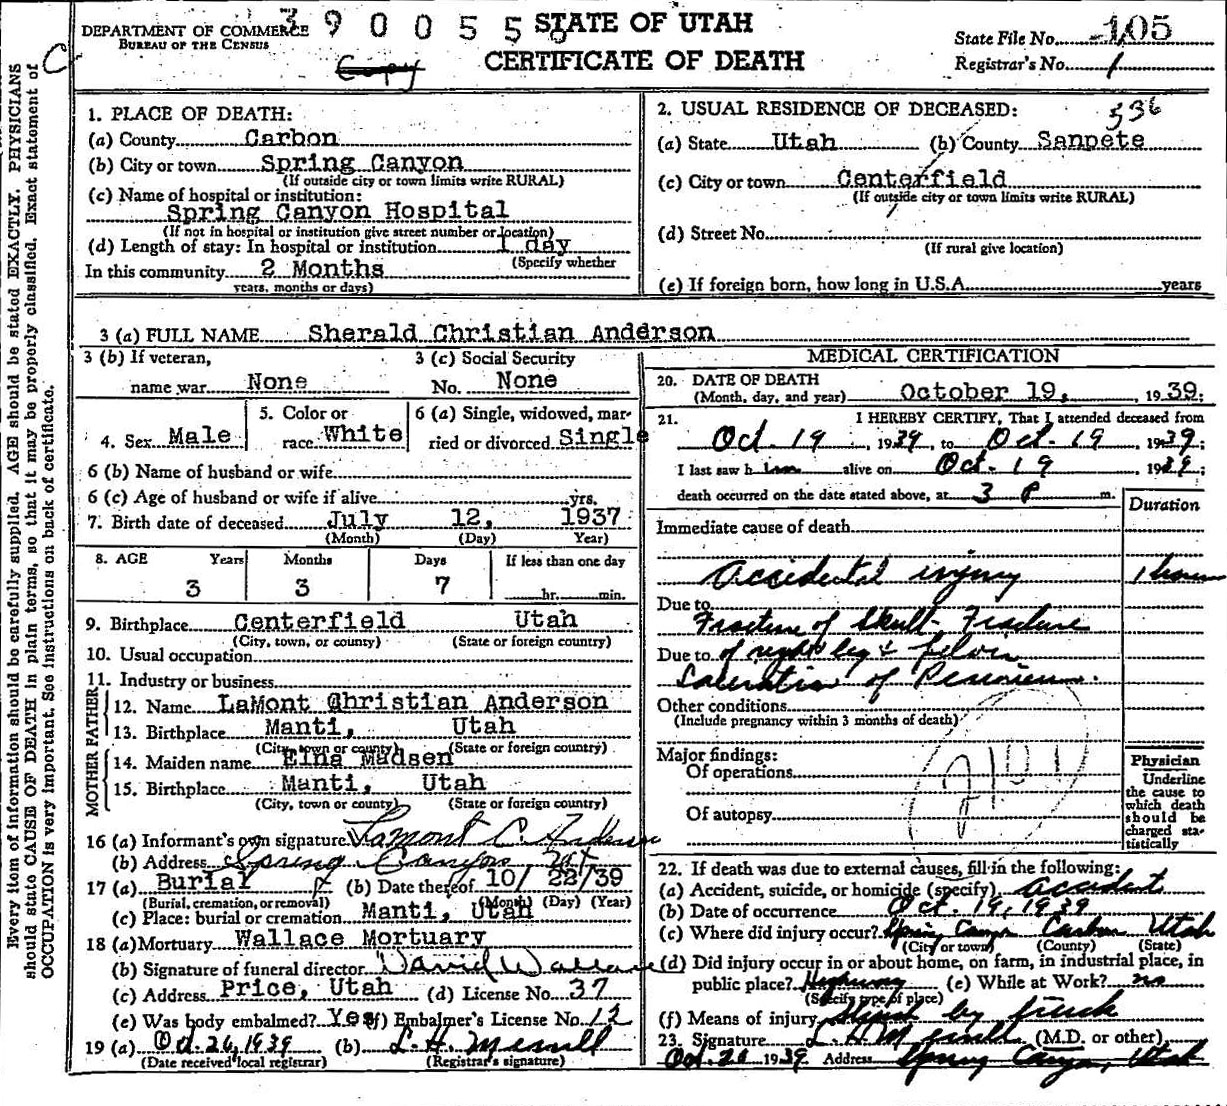 3 9 0 0 5 5
DEPARTMENT OF COMMERCE
BUREAU OF THE CENSUS
Copy
STATE OF UTAH
CERTIFICATE OF DEATH
State File No. 105
Registrar's No. 1
C
Every item of information should be carefully supplied. AGE should be stated EXACTLY. PHYSICIANS
should state CAUSE OF DEATH in plain terms, so that it may be properly classified. Exact statement of
OCCUPATION is very important. See instructions on back of certificate.
1. PLACE OF DEATH:
(a) County Carbon
(b) City or town Spring Canyon
(If outside city or town limits write RURAL)
(c) Name of hospital or institution:
Spring Canyon Hospital
(If not in hospital or institution give street number or location)
(d) Length of stay: In hospital or institution 1 day
(Specify whether
In this community 2 Months
years, months or days)
2. USUAL RESIDENCE OF DECEASED: 536
(a) State Utah (b) County Sanpete
(c) City or town Centerfield
(If outside city or town limits write RURAL)
(d) Street No.
(If rural give location)
(e) If foreign born, how long in U.S.A. years
3 (a) FULL NAME Sherald Christian Anderson
3 (b) If veteran, 3 (c) Social Security
name war None No. None
4. Sex Male 5. Color or race White 6 (a) Single, widowed, married or divorced Single
6 (b) Name of husband or wife
6 (c) Age of husband or wife if alive yrs.
7. Birth date of deceased July 12, 1937
(Month) (Day) Year)
8. AGE Years Months Days If less than one day
3 3 7 hr. min.
9. Birthplace Centerfield Utah
(City, town, or county) (State or foreign country)
10. Usual occupation
11. Industry or business
FATHER
12. Name LaMont Christian Anderson
13. Birthplace Manti, Utah
(City, town or county) (State or foreign country)
MOTHER
14. Maiden name Elna Madsen
15. Birthplace Manti, Utah
(City, town or county) (State or foreign country)
16 (a) Informant's own signature Lamont C. Anderson
(b) Address Spring Canyon Ut
17 (a) Burial (b) Date thereof 10/ 22/39
(Burial, cremation, or removal) (Month) (Day) (Year)
(c) Place: burial or cremation Manti, Utah
18 (a) Mortuary Wallace Mortuary
(b) Signature of funeral director David Wallace
(c) Address Price, Utah (d) License No. 37
(e) Was body embalmed? Yes (f) Embalmer's License No. 12
19 (a) Oct. 26, 1939 (b) L. H. Merrill
(Date received local registrar) (Registrar's signature)
MEDICAL CERTIFICATION
20. DATE OF DEATH
(Month, day, and year) October 19, 1939;
21. I HEREBY CERTIFY, That I attended deceased from
Oct. 19, 1939, to Oct. 19, 1939;
I last saw h im alive on Oct. 19, 1939;
death occurred on the date stated above, at 3 P m.
Duration
Immediate cause of death
Accidental injury 1 hour
Due to
Fracture of Skull- Fracture
Due to of right leg & pelvis
Laceration of Perineum.
Other conditions
(Include pregnancy within 3 months of death)
Major findings:
Of operations
Of autopsy
Physician
Underline
the cause to
which death
should be
charged sta-
tistically
22. If death was due to external causes, fill in the following:
(a) Accident, suicide, or homicide (specify) accident
(b) Date of occurrence Oct. 19, 1939
(c) Where did injury occur? Spring Canyon Carbon Utah
(City or town) (County) (State)
(d) Did injury occur in or about home, on farm, in industrial place, in
public place? Highway (e) While at Work? no
(Specify type of place)
(f) Means of injury Struck by truck
23. Signature L. H. Merrill (M.D. or other)
Oct. 26 1939 Address Spring Canyon, Utah